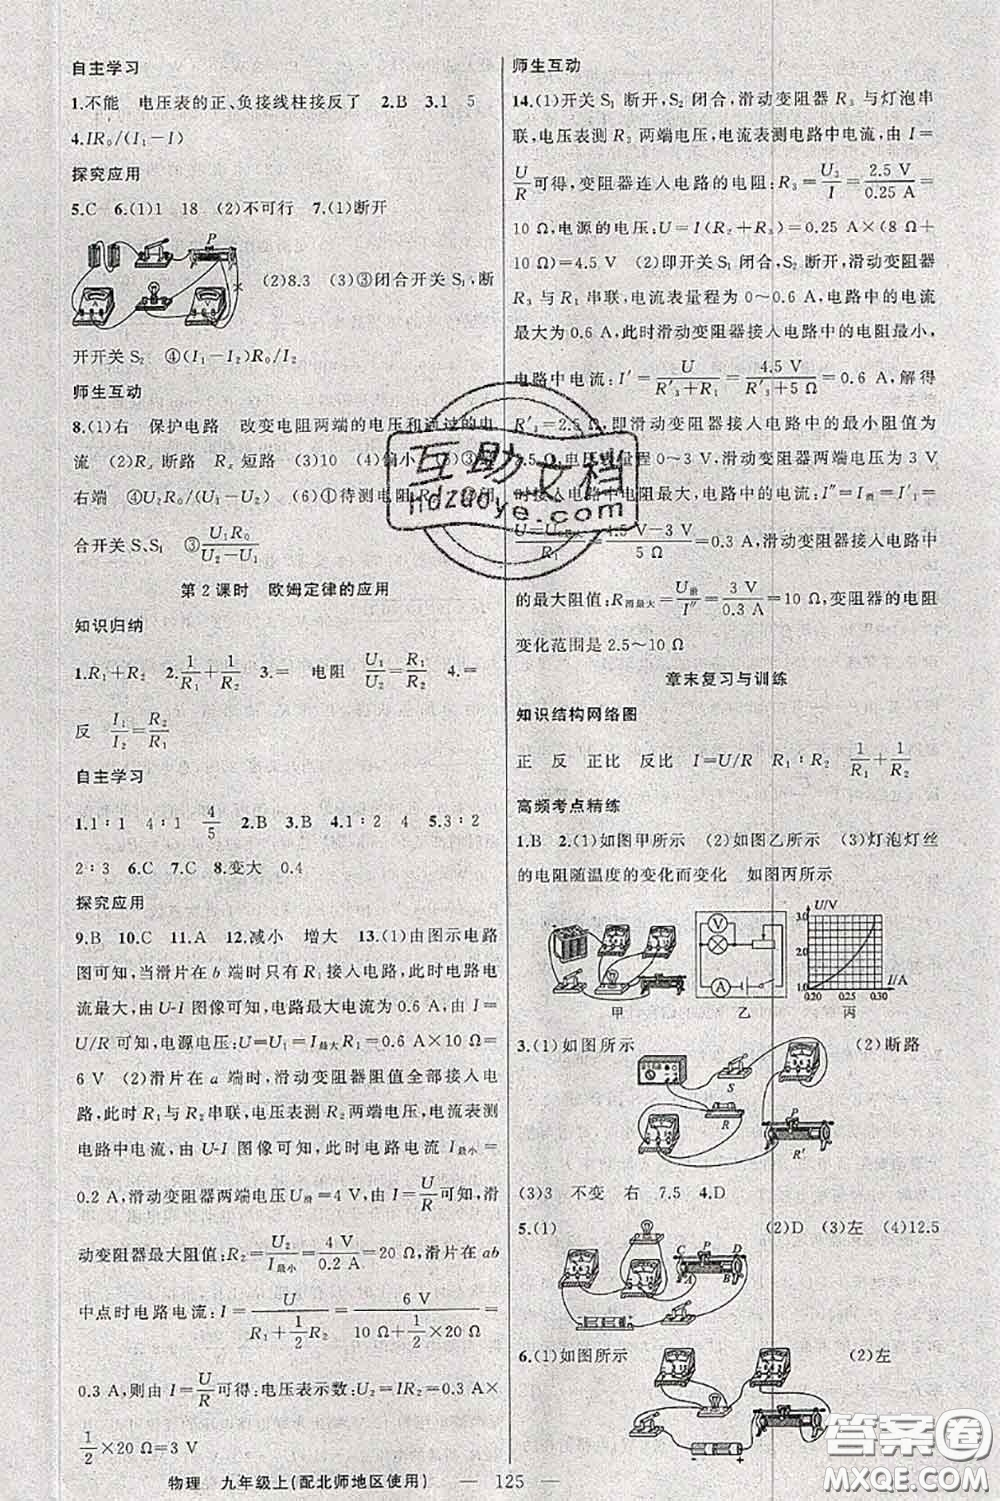 自主学习
1.不能 电压表的正、负接线柱接反了 2.B 3.1 5
4.IR₀/(I₁－I)
探究应用
5.C 6.(1)1 18 (2)不可行 7.(1)断开
P
(2)8.3 (3)③闭合开关 S₁,断
开开关 S₂ ④(I₁－I₂)R₀/I₂
师生互动
8.(1)右 保护电路 改变电阻两端的电压和通过的电
流 (2)Rₓ 断路 Rₓ 短路 (3)10 (4)偏小 (5)③
右端 ④U₁R₀/(U₂－U₁) (6)①待测电阻
合开关 S、S₁ ③U₁R₀/(U₂－U₁)
第 2 课时 欧姆定律的应用
知识归纳
1.R₁＋R₂ 2.1/R₁＋1/R₂ 3.＝ 电阻 U₁/U₂＝R₁/R₂ 4.＝
反 I₁/I₂＝R₂/R₁
自主学习
1.1∶1 4∶1 4/5 2.B 3.B 4.1∶2 4 5.3∶2
2∶3 6.C 7.C 8.变大 0.4
探究应用
9.B 10.C 11.A 12.减小 增大 13.(1)由图示电路
图可知,当滑片在 b 端时只有 R₁ 接入电路,此时电路电
流最大,由 U-I 图像可知,电路最大电流为 0.6 A,由 I＝
U/R 可知,电源电压:U＝U₁＝I最大R₁＝0.6 A×10 Ω＝
6 V (2)滑片在 a 端时,滑动变阻器阻值全部接入电
路,此时 R₁ 与 R₂ 串联,电压表测 R₂ 两端电压,电流表测
电路中电流,由 U-I 图像可知,此时电路电流 I最小＝
0.2 A,滑动变阻器两端电压 U滑＝4 V,由 I＝U/R可知,滑
动变阻器最大阻值:R₂＝U₂/I最小＝4 V/0.2 A＝20 Ω,滑片在 ab
中点时电路电流:I＝U/(R₁＋1/2 R₂)＝6 V/(10 Ω＋1/2×20 Ω)＝
0.3 A,则由 I＝U/R可得:电压表示数:U₂＝IR₂＝0.3 A×
1/2×20 Ω＝3 V
师生互动
14.(1)开关 S₁ 断开,S₂ 闭合,滑动变阻器 R₃ 与灯泡串
联,电压表测 R₃ 两端电压,电流表测电路中电流,由 I＝
U/R可得,变阻器连入电路的电阻:R₃＝U₃/I＝2.5 V/0.25 A＝
10 Ω,电源的电压:U＝I(R₂＋R₃)＝0.25 A×(8 Ω＋
10 Ω)＝4.5 V (2)即开关 S₁ 闭合,S₂ 断开,滑动变阻器
R₃ 与 R₁ 串联,电流表量程为 0～0.6 A,电路中的电流
最大为 0.6 A,此时滑动变阻器接入电路中的电阻最小,
电路中电流:I′＝U/(R′₃＋R₁)＝4.5 V/(R′₃＋5 Ω)＝0.6 A,解得
R′₃＝2.5 Ω,即滑动变阻器接入电路中的最小阻值为
2.5 Ω,电压表量程 0～3 V,滑动变阻器两端电压为 3 V
时接入电路中电阻最大,电路中的电流:I″＝I滑＝I′₁＝
U－U滑/R₁＝4.5 V－3 V/5 Ω＝0.3 A,滑动变阻器接入电路中
的最大阻值:R滑最大＝U滑/I″＝3 V/0.3 A＝10 Ω,变阻器的电阻
变化范围是 2.5～10 Ω
章末复习与训练
知识结构网络图
正 反 正比 反比 I＝U/R R₁∶R₂ 1/R₁＋1/R₂
高频考点精练
1.B 2.(1)如图甲所示 (2)如图乙所示 (3)灯泡灯丝
的电阻随温度的变化而变化 如图丙所示
V
A
U/V
3.0
2.0
1.0
0.20 0.25 0.30
I/A
甲 乙 丙
3.(1)如图所示 (2)断路
S
R
P
R′
(3)3 不变 右 7.5 4.D
5.(1) (2)D (3)左 (4)12.5
C P D
A B
6.(1)如图所示 (2)左
物理 九年级上(配北师地区使用) — 125 —
互助文档
hdzuoye.com
答案圈
MXQE.COM